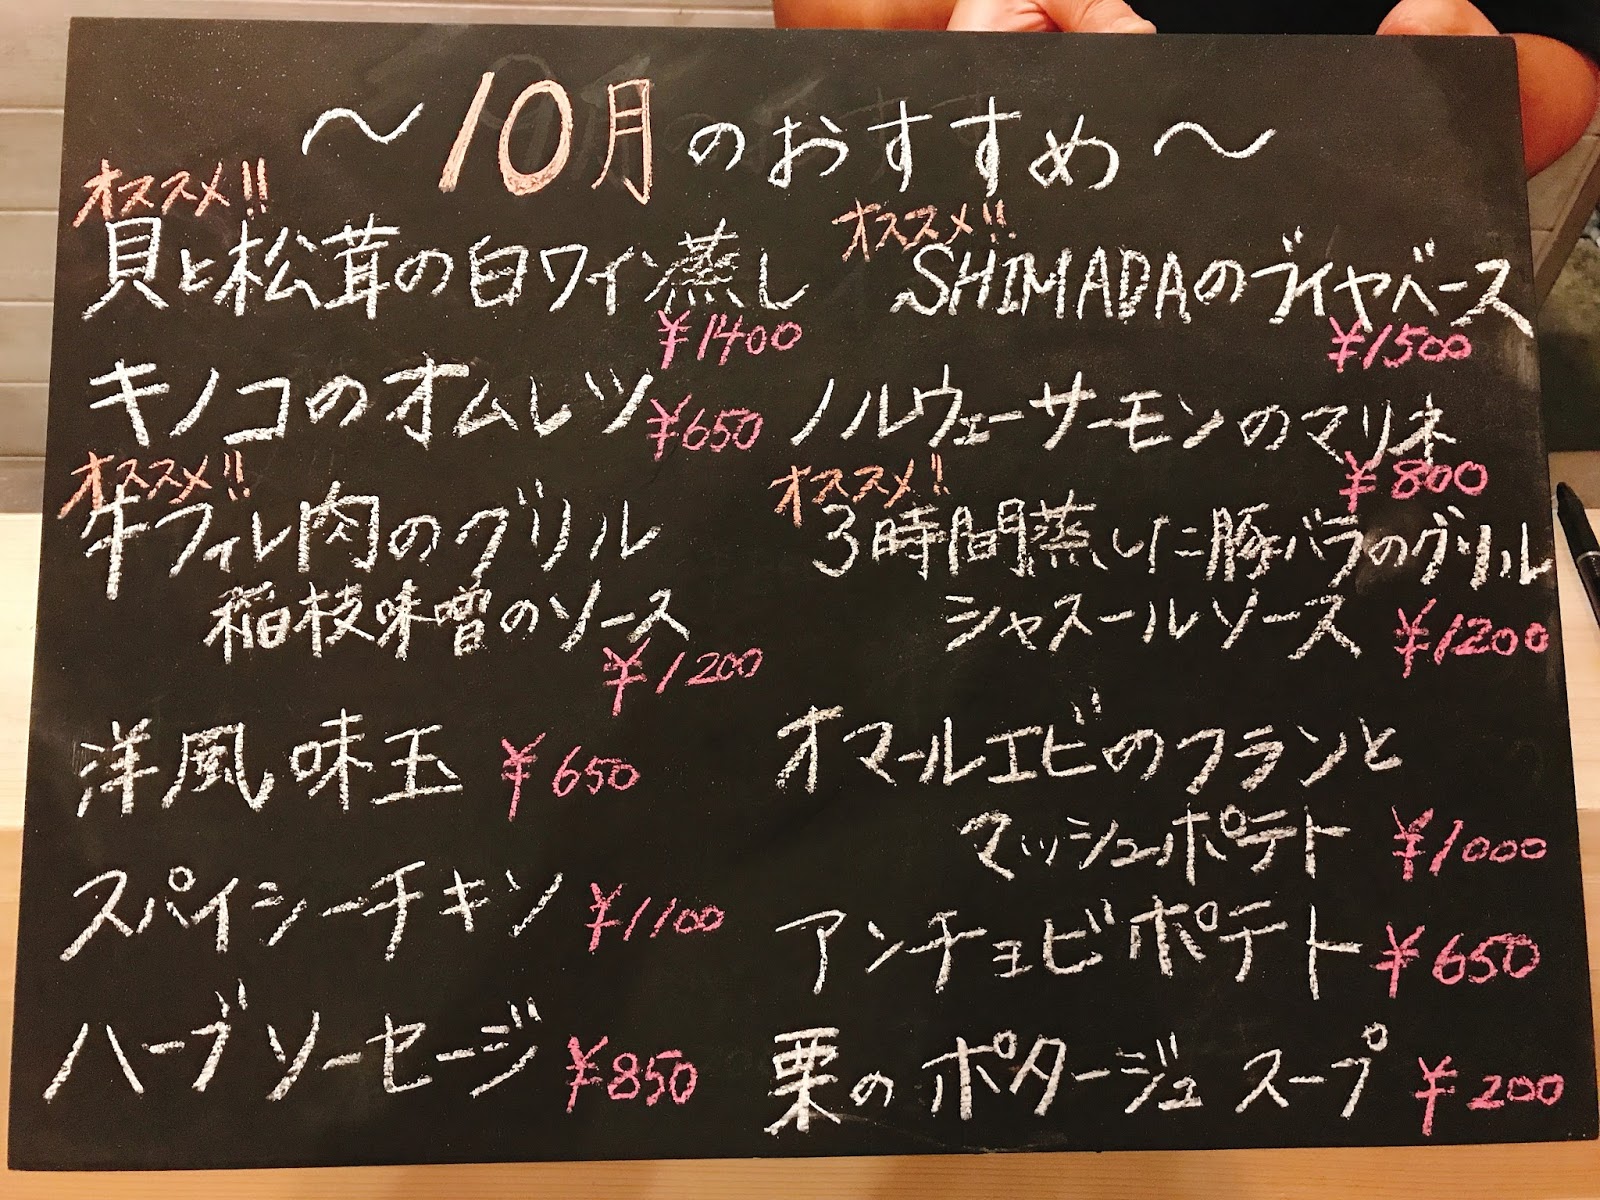 〜10月のおすすめ〜
オススメ!!
貝と松茸の白ワイン蒸し
¥1400
キノコのオムレツ ¥650
オススメ!!
牛フィレ肉のグリル
稲枝味噌のソース
¥1200
洋風味玉 ¥650
スパイシーチキン ¥1100
ハーブソーセージ ¥850
オススメ!!
SHIMADAのブイヤベース
¥1500
ノルウェーサーモンのマリネ
¥800
オススメ!!
3時間蒸した豚バラのグリル
シャスールソース ¥1200
オマールエビのフランと
マッシュポテト ¥1000
アンチョビポテト ¥650
栗のポタージュスープ ¥200